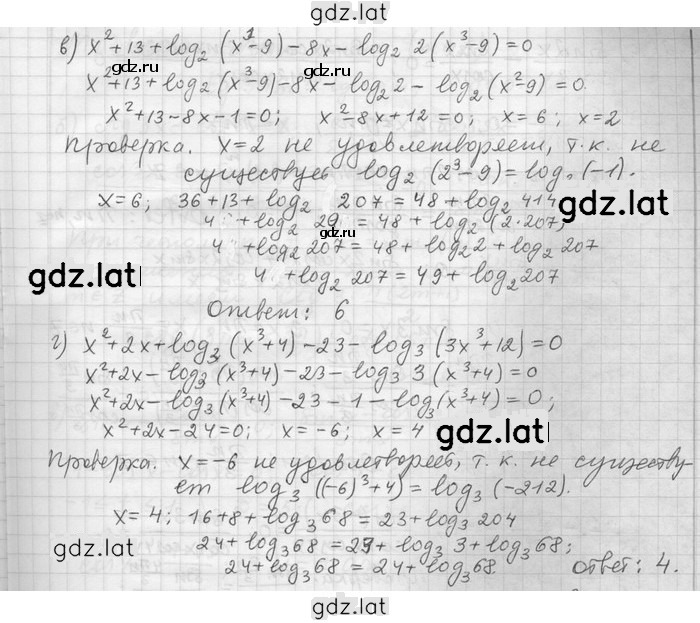 gdz.lat
в) x²+13+log₂(x³-9)-8x-log₂ 2(x³-9)=0
gdz.ru gdz.ru
x²+13+log₂(x³-9)-8x-log₂2-log₂(x²-9)=0
x²+13-8x-1=0; x²-8x+12=0; x=6; x=2
Проверка. x=2 не удовлетворяет, т.к. не
существует log₂(2³-9)=log₂(-1).
x=6; 36+13+log₂ 207=48+log₂414
gdz.ru gdz.ru
4 +log₂ 29 =48+log₂(2·207);
4 +log₂207=48+log₂2+log₂207
gdz.lat gdz.lat
4 +log₂207=49+log₂207
Ответ: 6
г) x²+2x+log₃(x³+4)-23-log₃(3x³+12)=0
x²+2x-log₃(x³+4)-23-log₃3(x³+4)=0
x²+2x-log₃(x³+4)-23-1-log₃(x³+4)=0;
x²+2x-24=0; x=-6; x=4
gdz.lat
Проверка. x=-6 не удовлетворяет, т.к. не существу-
ет log₃((-6)³+4)=log₃(-212).
x=4; 16+8+log₃68=23+log₃204
gdz.lat
24+log₃68=23+log₃3+log₃68;
24+log₃68=24+log₃68 ответ: 4.
gdz.lat